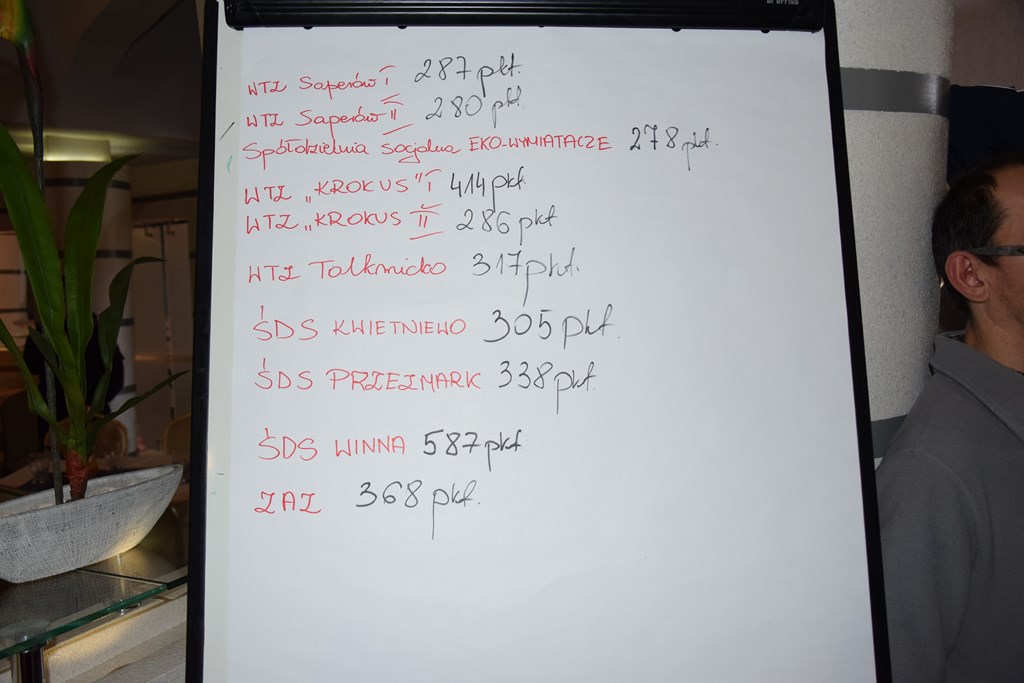 WTZ Saperów I 287 pkt.
WTZ Saperów II 280 pkt.
Spółdzielnia socjalna EKO-WYMIATACZE 278 pkt.
WTZ „KROKUS" I 414 pkt
WTZ „KROKUS II 286 pkt
WTZ Tolkmicko 317 pkt.
ŚDS KWIETNIEWO 305 pkt.
ŚDS PRZEZMARK 338 pkt.
ŚDS WINNA 587 pkt
ZAZ 368 pkt.